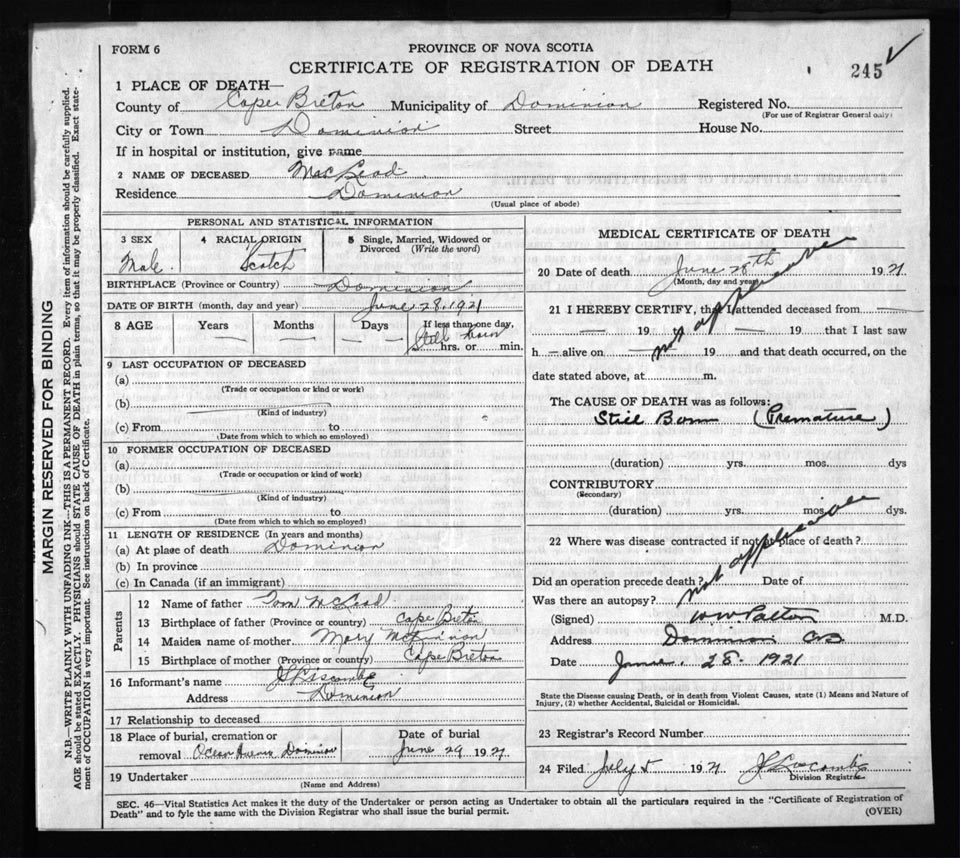 FORM 6
PROVINCE OF NOVA SCOTIA
CERTIFICATE OF REGISTRATION OF DEATH
245
1 PLACE OF DEATH—
County of Cape Breton Municipality of Dominion Registered No.
(For use of Registrar General only)
City or Town Dominion Street House No.
If in hospital or institution, give name
2 NAME OF DECEASED MacLeod
Residence Dominion
(Usual place of abode)
PERSONAL AND STATISTICAL INFORMATION
3 SEX 4 RACIAL ORIGIN 5 Single, Married, Widowed or Divorced (Write the word)
Male. Scotch
BIRTHPLACE (Province or Country) Dominion
DATE OF BIRTH (month, day and year) June 28, 1921
8 AGE Years Months Days If less than one day,
Still born
hrs. or min.
9 LAST OCCUPATION OF DECEASED
(a)
(Trade or occupation or kind or work)
(b)
(Kind of industry)
(c) From to
(Date from which to which so employed)
10 FORMER OCCUPATION OF DECEASED
(a)
(Trade or occupation or kind of work)
(b)
(Kind of industry)
(c) From to
(Date from which to which so employed)
11 LENGTH OF RESIDENCE (In years and months)
(a) At place of death Dominion
(b) In province
(c) In Canada (if an immigrant)
Parents
12 Name of father Tom McLeod
13 Birthplace of father (Province or country) Cape Breton
14 Maiden name of mother Mary McKinnon
15 Birthplace of mother (Province or country) Cape Breton
16 Informant's name J Liscombe
Address Dominion
17 Relationship to deceased
18 Place of burial, cremation or removal Ocean Avenue Dominion
Date of burial June 29 1921
19 Undertaker
(Name and Address)
MEDICAL CERTIFICATE OF DEATH
20 Date of death June 28th 1921
(Month, day and year)
21 I HEREBY CERTIFY, that I attended deceased from —
— 19 — 19 that I last saw
h — alive on — 19 and that death occurred, on the
date stated above, at m.
not applicable
The CAUSE OF DEATH was as follows:
Still Born (Premature)
(duration) yrs. mos. dys
CONTRIBUTORY
(Secondary)
(duration) yrs. mos. dys.
22 Where was disease contracted if not place of death?
Did an operation precede death? Date of
Was there an autopsy?
not applicable
(Signed) W W Patton M.D.
Address Dominion CB
Date June. 28. 1921
State the Disease causing Death, or in death from Violent Causes, state (1) Means and Nature of
Injury, (2) whether Accidental, Suicidal or Homicidal.
23 Registrar's Record Number
24 Filed July 5 1921 J Liscombe
Division Registrar
SEC. 46—Vital Statistics Act makes it the duty of the Undertaker or person acting as Undertaker to obtain all the particulars required in the "Certificate of Registration of
Death" and to fyle the same with the Division Registrar who shall issue the burial permit.
(OVER)
MARGIN RESERVED FOR BINDING
N.B.—WRITE PLAINLY WITH UNFADING INK—THIS IS A PERMANENT RECORD. Every item of information should be carefully supplied.
AGE should be stated EXACTLY. PHYSICIANS should STATE CAUSE OF DEATH in plain terms, so that it may be properly classified. Exact state-
ment of OCCUPATION is very important. See instructions on back of Certificate.